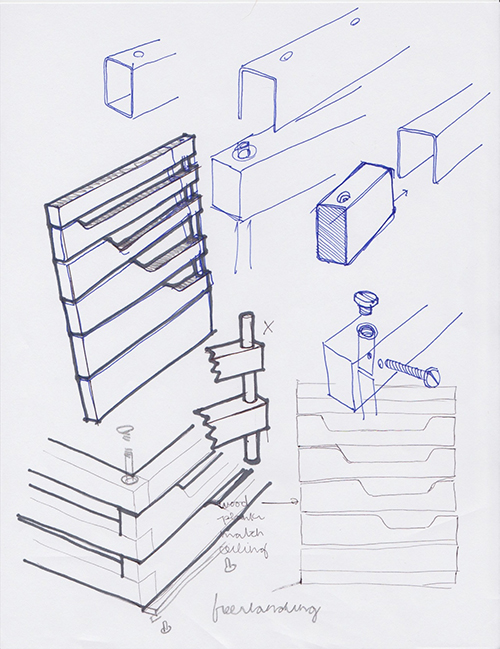 X
wood
planks
match
ceiling
freestanding